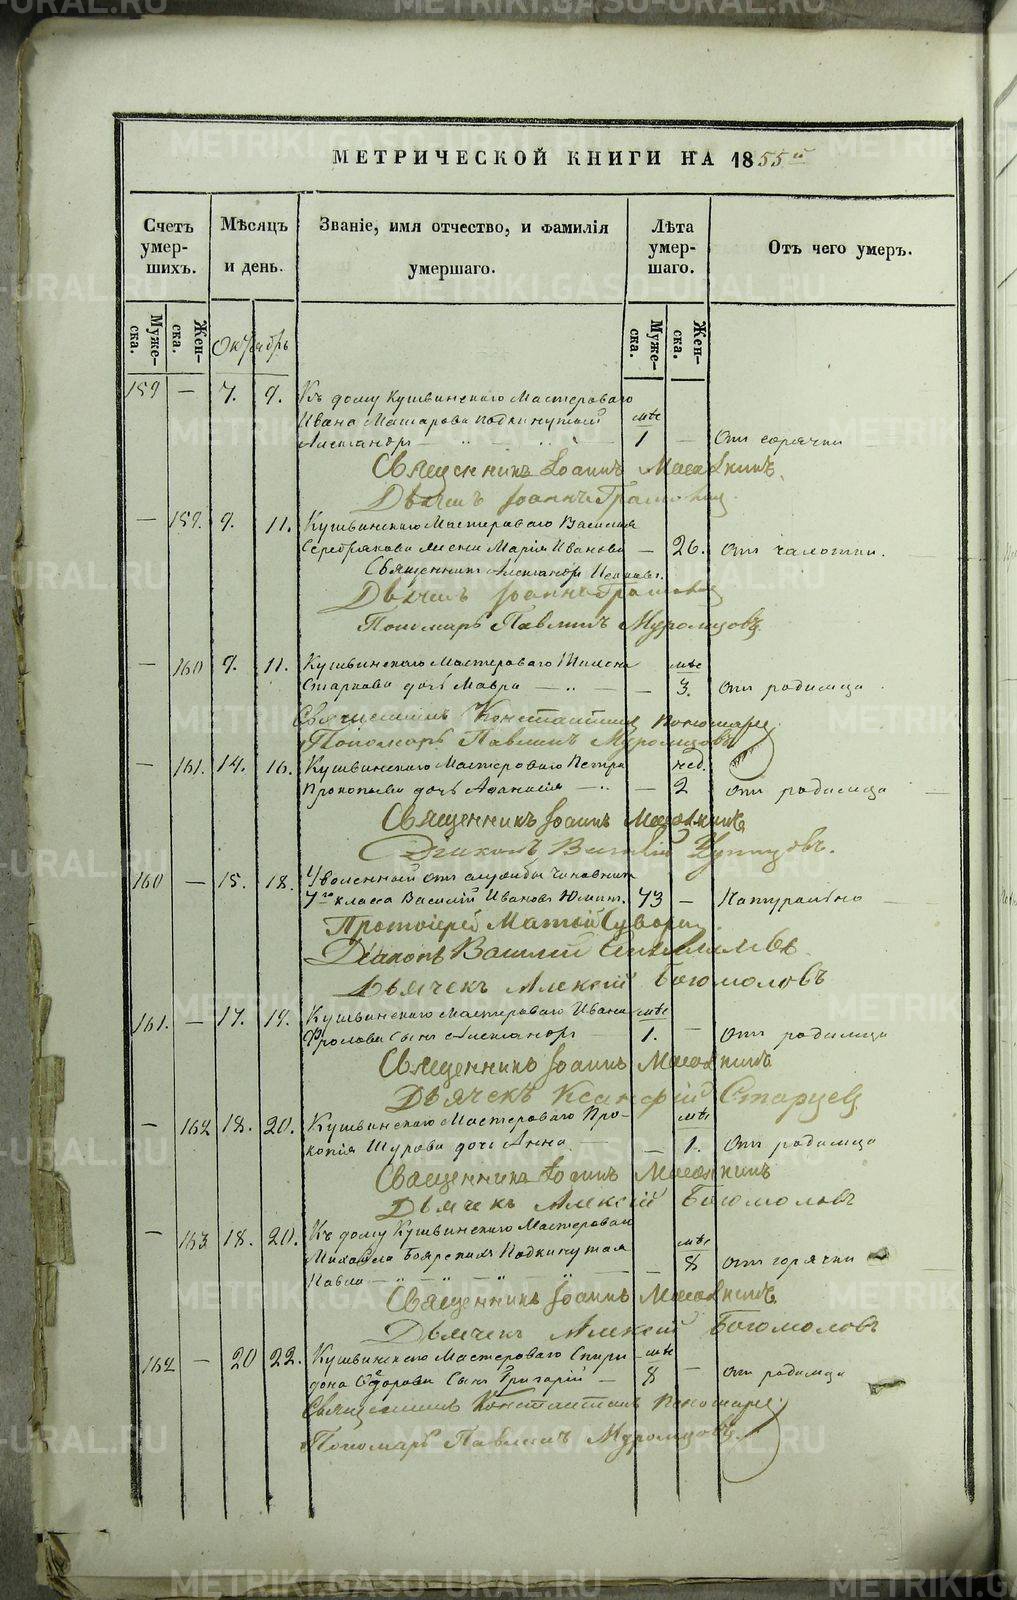 МЕТРИЧЕСКОЙ КНИГИ НА 1855й
Счетъ умершихъ.
Мѣсяцъ и день.
Званіе, имя отчество, и фамилія умершаго.
Лѣта умершаго.
Отъ чего умеръ.
Мужеска.
Женска.
Октябрь
Мужеска.
Женска.
159 — 7. 9. Къ дому Кушвинскаго Мастероваго
Ивана Макарова подкинутый мѣс
Александръ 1 — отъ горячки
Священникъ Іоаннъ
Дьячекъ Іоаннъ
— 159. 9. 11. Кушвинскаго Мастероваго Василія
Серебрякова жена Марія Иванова — 26. отъ чахотки.
Священникъ Александръ
Дьячекъ Іоаннъ
Пономарь Павлинъ Муромцовъ
— 160 9. 11. Кушвинскаго Мастероваго мѣс
Старкова дочь Мавра — „ — — 3. отъ родимца
Священникъ Константинъ Пономаревъ
Пономарь Павлинъ Муромцовъ
— 161. 14. 16. Кушвинскаго Мастероваго Петра нед.
Прокопьева дочь Афанасія — „ — 2 отъ родимца
Священникъ Іоаннъ
Діаконъ Василій
160 — 15. 18. Уволенный отъ службы Чиновникъ
7го класса Василій Ивановъ 73 — Натурально
Протоіерей Матфей Суворовъ
Діаконъ Василій
Дьячекъ Алексій Богомоловъ
161. — 17. 19. Кушвинскаго Мастероваго Ивана мѣс
Фролова Сынъ Александръ 1. — отъ родимца
Священникъ Іоаннъ
Дьячекъ Ксанфій Старцев
— 162 18. 20. Кушвинскаго Мастероваго Про- мѣс
копія Шурова дочь Анна — 1. отъ родимца
Священникъ Іоаннъ
Дьячекъ Алексій Богомоловъ
— 163 18. 20. Къ дому Кушвинскаго Мастероваго
Михаила Боярскихъ Подкинутая мѣс
Павла — „ — „ — „ — „ — 8 отъ горячки
Священникъ Іоаннъ
Дьячекъ Алексій Богомоловъ
162 — 20 22. Кушвинскаго Мастероваго Спири- мѣс
дона Сынъ Григорій — 8 — отъ родимца
Священникъ Константинъ Пономаревъ
Пономарь Павлинъ Муромцовъ
METRIKI.GASO-URAL.RU